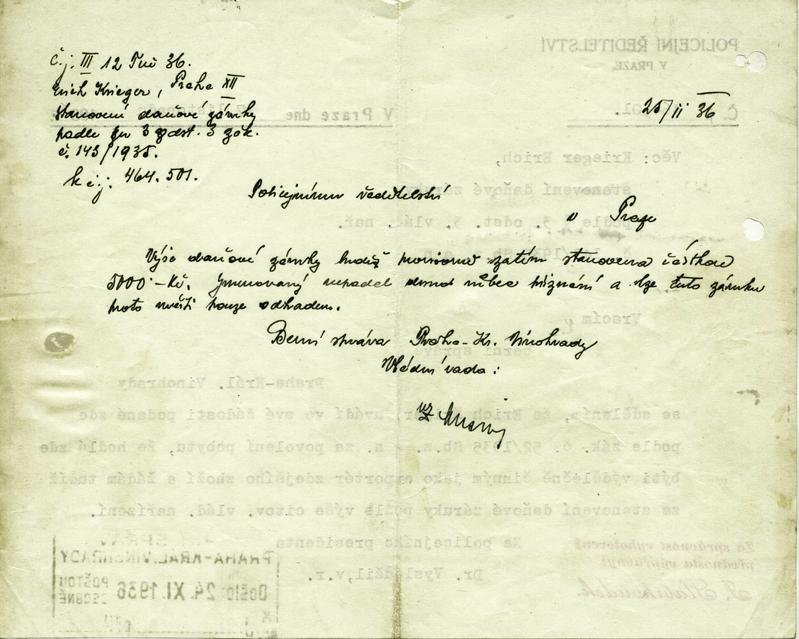 č.j. III 12 Tuč 36.
Erich Krieger, Praha XII
Stanovení daňové záruky
podle §u 3 odst. 3 zák.
č. 143/1935.
k č.j: 464.501.
25/11 36
Policejnímu ředitelství
v Praze
Výše daňové záruky budiž prozatím stanovena částkou
5000·-Kč. Jmenovaný nepodal dosud vůbec přiznání a lze tuto záruku
proto určiti pouze odhadem.
Berní správa Praha-Kr. Vinohrady
Vládní rada:
POLICEJNÍ ŘEDITELSTVÍ
V PRAZE.
V Praze dne
Věc: Krieger Erich,
stanovení daňové
podle § 3, odst. 3. vlád. nař.
Vracím
berní správě
Praha-Král. Vinohrady
se sdělením, že Erich uvádí ve své žádosti podané zde
podle zák. č. 52/1935 Sb.z. a n. za povolení pobytu, že hodlá zde
býti výdělečně činným jako exportér zdejšího zboží a žádám tudíž
za stanovení daňové záruky podle výše citov. vlád. nařízení.
Za policejního presidenta
Dr. Vyslážil,v.r.
Za správnost vyhotovení
přednosta výpravny:
PRAHA-KRÁL.VINOHRADY
Došlo: 24. XI. 1936
POŠTOU
OSOBNĚ